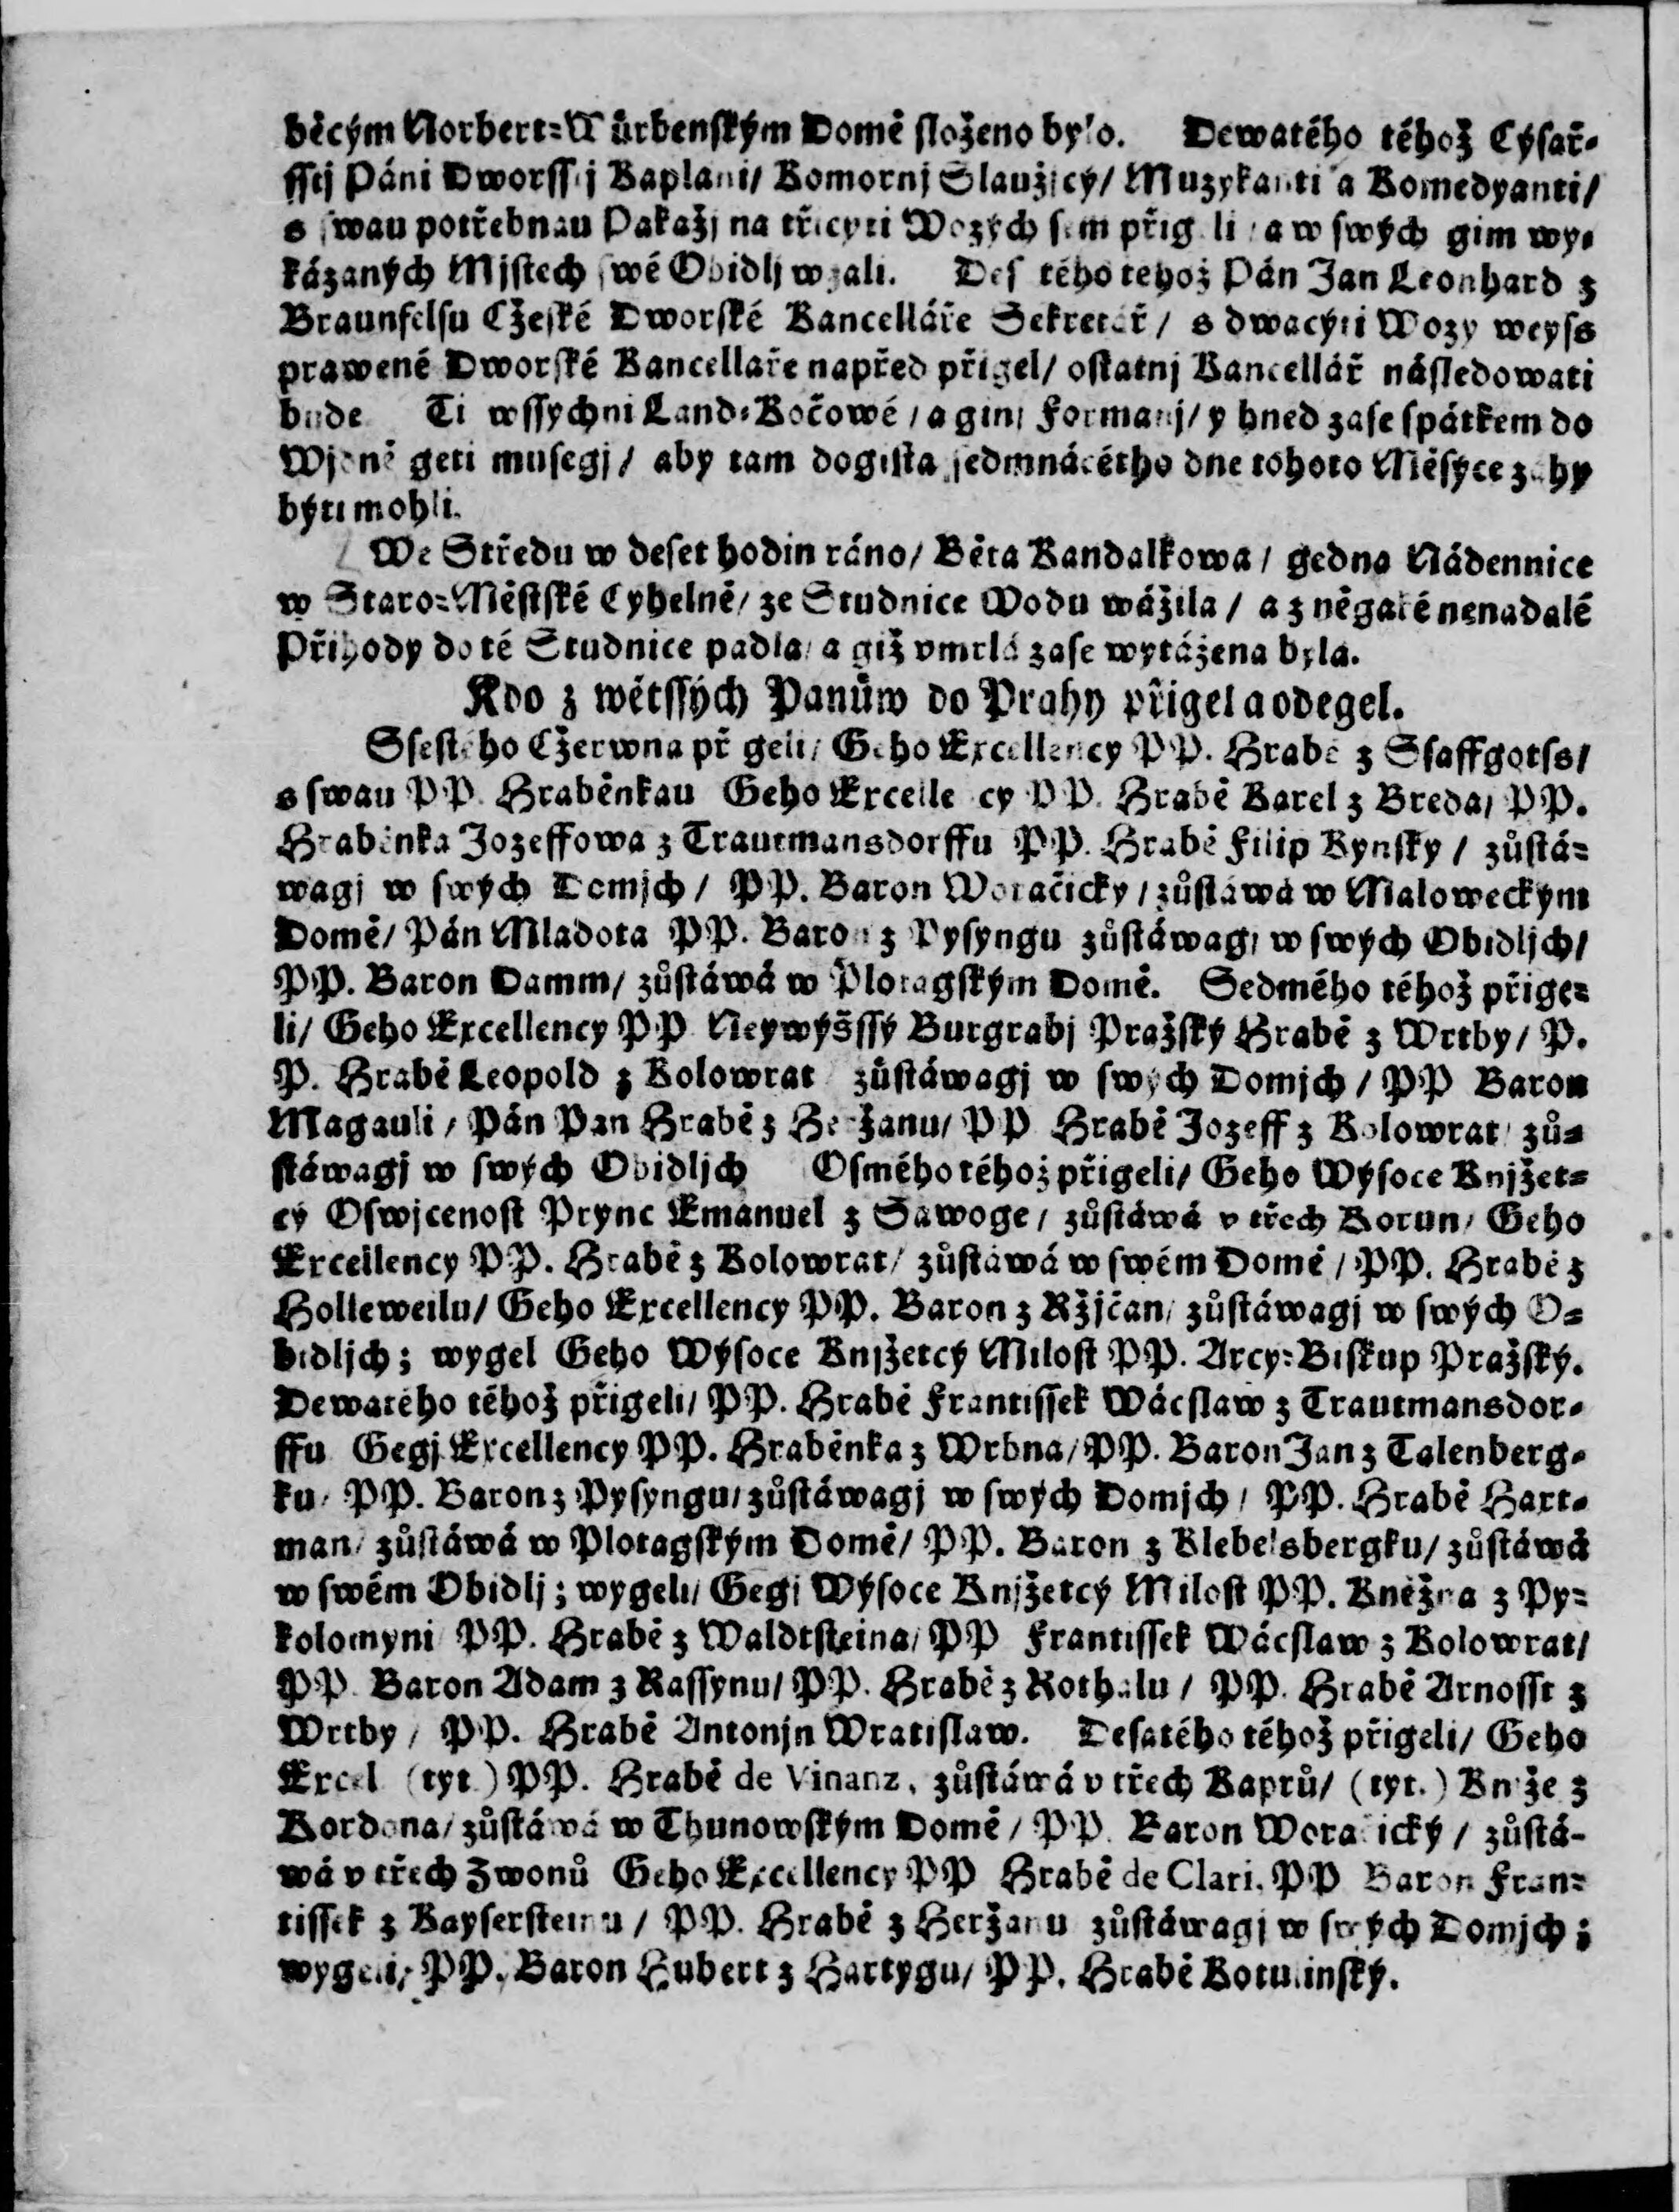 běcým Norbert-Würbenským Domě složeno bylo. Dewatého téhož Cýsař-
sstj Páni Dworsstj Kaplani/ Komornj Slaužjcý/ Muzykanti a Komedyanti/
s swau potřebnau Pakažj na třicyti Wozých sem přigeli / a w swých gim wy-
kázaných Mjstech swé Obidlj wzali. Desátého tehož Pán Jan Leonhard z
Braunfelsu Cžeské Dworské Kancelláře Sekretář / s dwacýti Wozy weyss
prawené Dworské Kancellaře napřed přigel/ ostatnj Kancellář následowati
bude Ti wssychni Land-Kočowé / a ginj Formanj/ y hned zase spátkem do
Wjdně geti musegj / aby tam dogista sedmnácétho dne tohoto Měsýce zahy
býti mohli.
We Středu w deset hodin ráno/ Běta Kandalkowa / gedna Nádennice
w Staro-Městské Cyhelně/ ze Studnice Wodu wážila / a z něgaké nenadalé
Přihody do té Studnice padla/ a giž vmrlá zase wytážena byla.
Kdo z wětssých Panůw do Prahy přigel a odegel.
Ssestého Cžerwna přigeli/ Geho Excellency PP. Hrabě z Ssaffgotss/
s swau PP. Hraběnkau Geho Excellency PP. Hrabě Karel z Breda/ PP.
Hraběnka Jozeffowa z Trautmansdorffu PP. Hrabě Filip Kynsky / zůstá-
wagj w swých Domjch / PP. Baron Woračicky / zůstáwá w Maloweckým
Domě/ Pán Mladota PP. Baron z Pysyngu zůstáwagj w swých Obidljch/
PP. Baron Damm/ zůstáwá w Plotagským Domě. Sedmého téhož přige-
li/ Geho Excellency PP Neywýšssý Burgrabj Pražský Hrabě z Wrtby/ P.
P. Hrabě Leopold z Kolowrat zůstáwagj w swých Domjch / PP Baron
Magauli / Pán Pan Hrabě z Heržanu/ PP Hrabě Jozeff z Kolowrat/ zů-
stáwagj w swých Obidljch Osmého téhož přigeli/ Geho Wýsoce Knjžet-
cý Oswjcenost Prync Emanuel z Sawoge / zůstáwá v třech Korun/ Geho
Excellency PP. Hrabě z Kolowrat/ zůstáwá w swém Domě / PP. Hrabě z
Holleweilu/ Geho Excellency PP. Baron z Ržjčan/ zůstáwagj w swých O-
bidljch; wygel Geho Wýsoce Knjžetcý Milost PP. Arcy-Biskup Pražský.
Dewatého téhož přigeli/ PP. Hrabě Frantissek Wácslaw z Trautmansdor-
ffu Gegj Excellency PP. Hraběnka z Wrbna/ PP. Baron Jan z Talenberg-
ku/ PP. Baron z Pysyngu/ zůstáwagj w swých Domjch / PP. Hrabě Hart-
man/ zůstáwá w Plotagským Domě/ PP. Baron z Klebelsbergku/ zůstáwá
w swém Obidlj; wygeli/ Gegj Wýsoce Knjžetcý Milost PP. Kněžna z Py-
kolomyni PP. Hrabě z Waldtsteina/ PP Frantissek Wácslaw z Kolowrat/
PP Baron Adam z Rassynu/ PP. Hrabě z Rothalu / PP. Hrabě Arnosst z
Wrtby / PP. Hrabě Antonjn Wratislaw. Desatého téhož přigeli/ Geho
Excel (tyt.) PP. Hrabě de Vinanz, zůstáwá v třech Kaprů/ (tyt.) Knjže z
Kordona/ zůstáwá w Thunowským Domě / PP. Baron Woračický / zůstá-
wá v třech Zwonů Geho Excellency PP Hrabě de Clari, PP Baron Fran-
tissek z Kaysersteinu / PP. Hrabě z Heržanu zůstáwagj w swých Domjch;
wygeli/ PP. Baron Hubert z Hartygu/ PP. Hrabě Kotulinský.